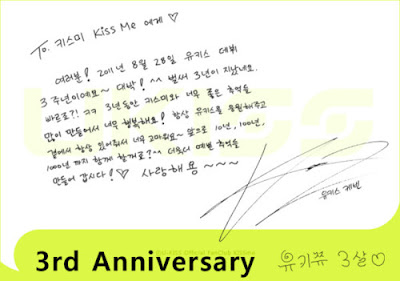 To. 키스미 Kiss Me 에게 ♡
여러분! 2011년 8월 28일 유키스 데뷔
3주년이에요~ 대박! ^^ 벌써 3년이 지났네요.
빠르죠?! ㅋㅋ 3년동안 키스미와 너무 좋은 추억들
많이 만들어서 너무 행복해요! 항상 유키스를 응원해주고
곁에서 항상 있어줘서 너무 고마워요~ 앞으로 10년, 100년,
1000년 까지 함께 할게죠?^^ 더욱더 예쁜 추억을
만들어 갑시다!♡ 사랑해용~~~
유키스 케빈
3rd Anniversary
유키쮸 3살♡